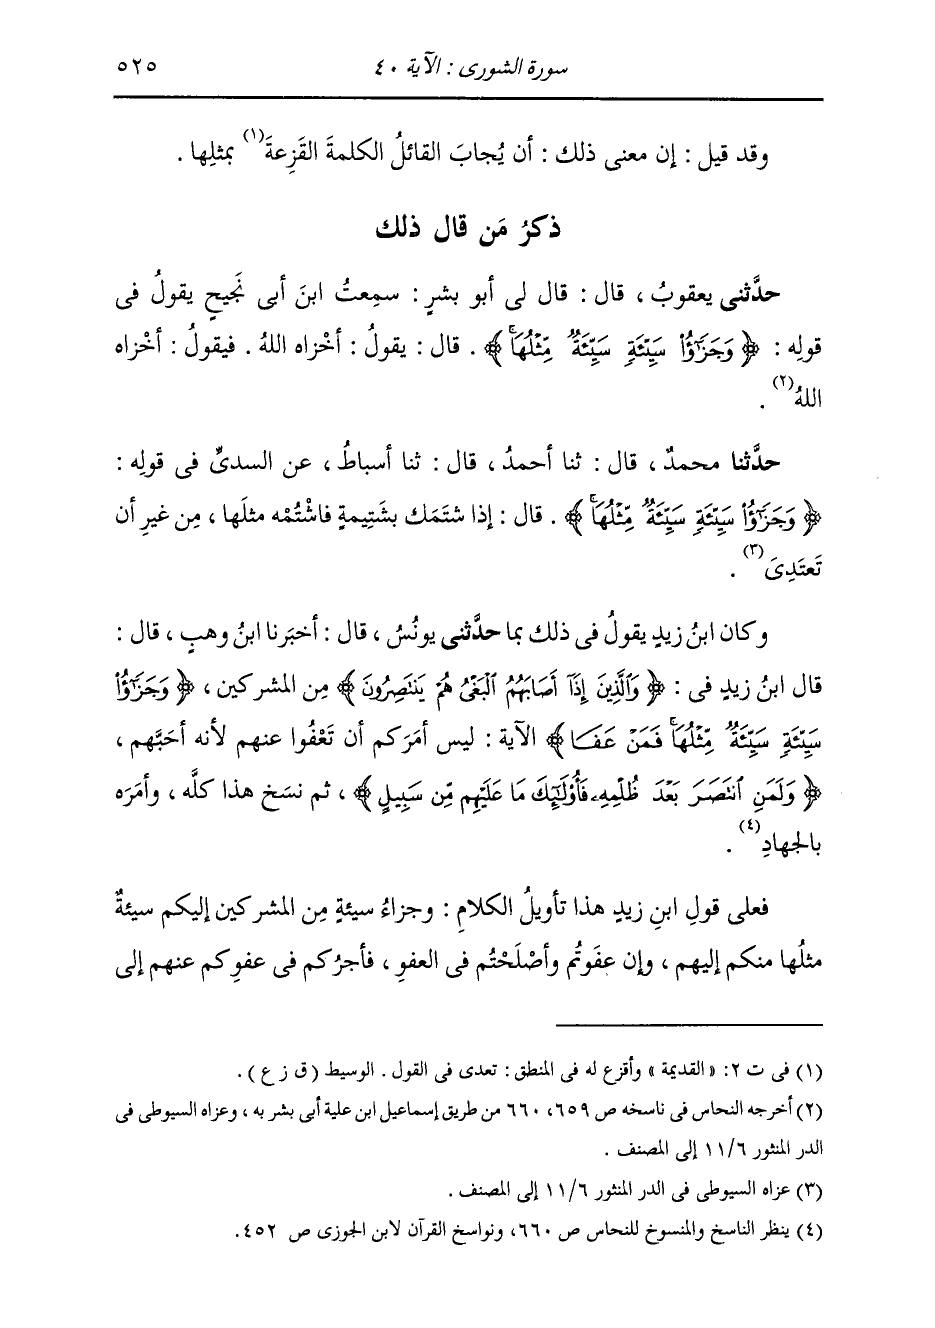 سورة الشورى : الآية ٤٠ ٥٢٥
وقد قيل : إن معنى ذلك : أن يُجابَ القائلُ الكلمةَ القَزِعةَ(١) بمثلِها .
ذكرُ مَن قال ذلك
حدَّثنى يعقوبُ ، قال : قال لى أبو بشرٍ : سمِعتُ ابنَ أبى نَجيحٍ يقولُ فى
قولِه : ﴿ وَجَزَٰٓؤُاْ سَيِّئَةٖ سَيِّئَةٞ مِّثۡلُهَاۖ ﴾ . قال : يقولُ : أخْزاه اللهُ . فيقولُ : أخْزاه
اللهُ(٢) .
حدَّثنا محمدٌ ، قال : ثنا أحمدُ ، قال : ثنا أسباطُ ، عن السدىِّ فى قولِه :
﴿ وَجَزَٰٓؤُاْ سَيِّئَةٖ سَيِّئَةٞ مِّثۡلُهَاۖ ﴾ . قال : إذا شتَمَك بشَتِيمةٍ فاشْتُمْه مثلَها ، مِن غيرِ أن
تَعتَدِىَ(٣) .
وكان ابنُ زيدٍ يقولُ فى ذلك بما حدَّثنى يونُسُ ، قال : أخبَرنا ابنُ وهبٍ ، قال :
قال ابنُ زيدٍ فى : ﴿ وَٱلَّذِينَ إِذَآ أَصَابَهُمُ ٱلۡبَغۡيُ هُمۡ يَنتَصِرُونَ ﴾ مِن المشركين ، ﴿ وَجَزَٰٓؤُاْ
سَيِّئَةٖ سَيِّئَةٞ مِّثۡلُهَاۖ فَمَنۡ عَفَا ﴾ الآية : ليس أمَركم أن تَعْفُوا عنهم لأنه أحَبَّهم ،
﴿ وَلَمَنِ ٱنتَصَرَ بَعۡدَ ظُلۡمِهِۦ فَأُوْلَٰٓئِكَ مَا عَلَيۡهِم مِّن سَبِيلٍ ﴾ ، ثم نسَخ هذا كلَّه ، وأمَره
بالجهادِ(٤) .
فعلى قولِ ابنِ زيدٍ هذا تأويلُ الكلامِ : وجزاءُ سيئةٍ مِن المشركين إليكم سيئةٌ
مثلُها منكم إليهم ، وإن عفَوتُم وأصْلَحْتُم فى العفوِ ، فأجرُكم فى عفوِكم عنهم إلى
(١) فى ت ٢: « القديمة » وأقزع له فى المنطق : تعدى فى القول . الوسيط ( ق ز ع ) .
(٢) أخرجه النحاس فى ناسخه ص ٦٥٩، ٦٦٠ من طريق إسماعيل ابن علية أبى بشر به ، وعزاه السيوطى فى
الدر المنثور ١١/٦ إلى المصنف .
(٣) عزاه السيوطى فى الدر المنثور ١١/٦ إلى المصنف .
(٤) ينظر الناسخ والمنسوخ للنحاس ص ٦٦٠، ونواسخ القرآن لابن الجوزى ص ٤٥٢.